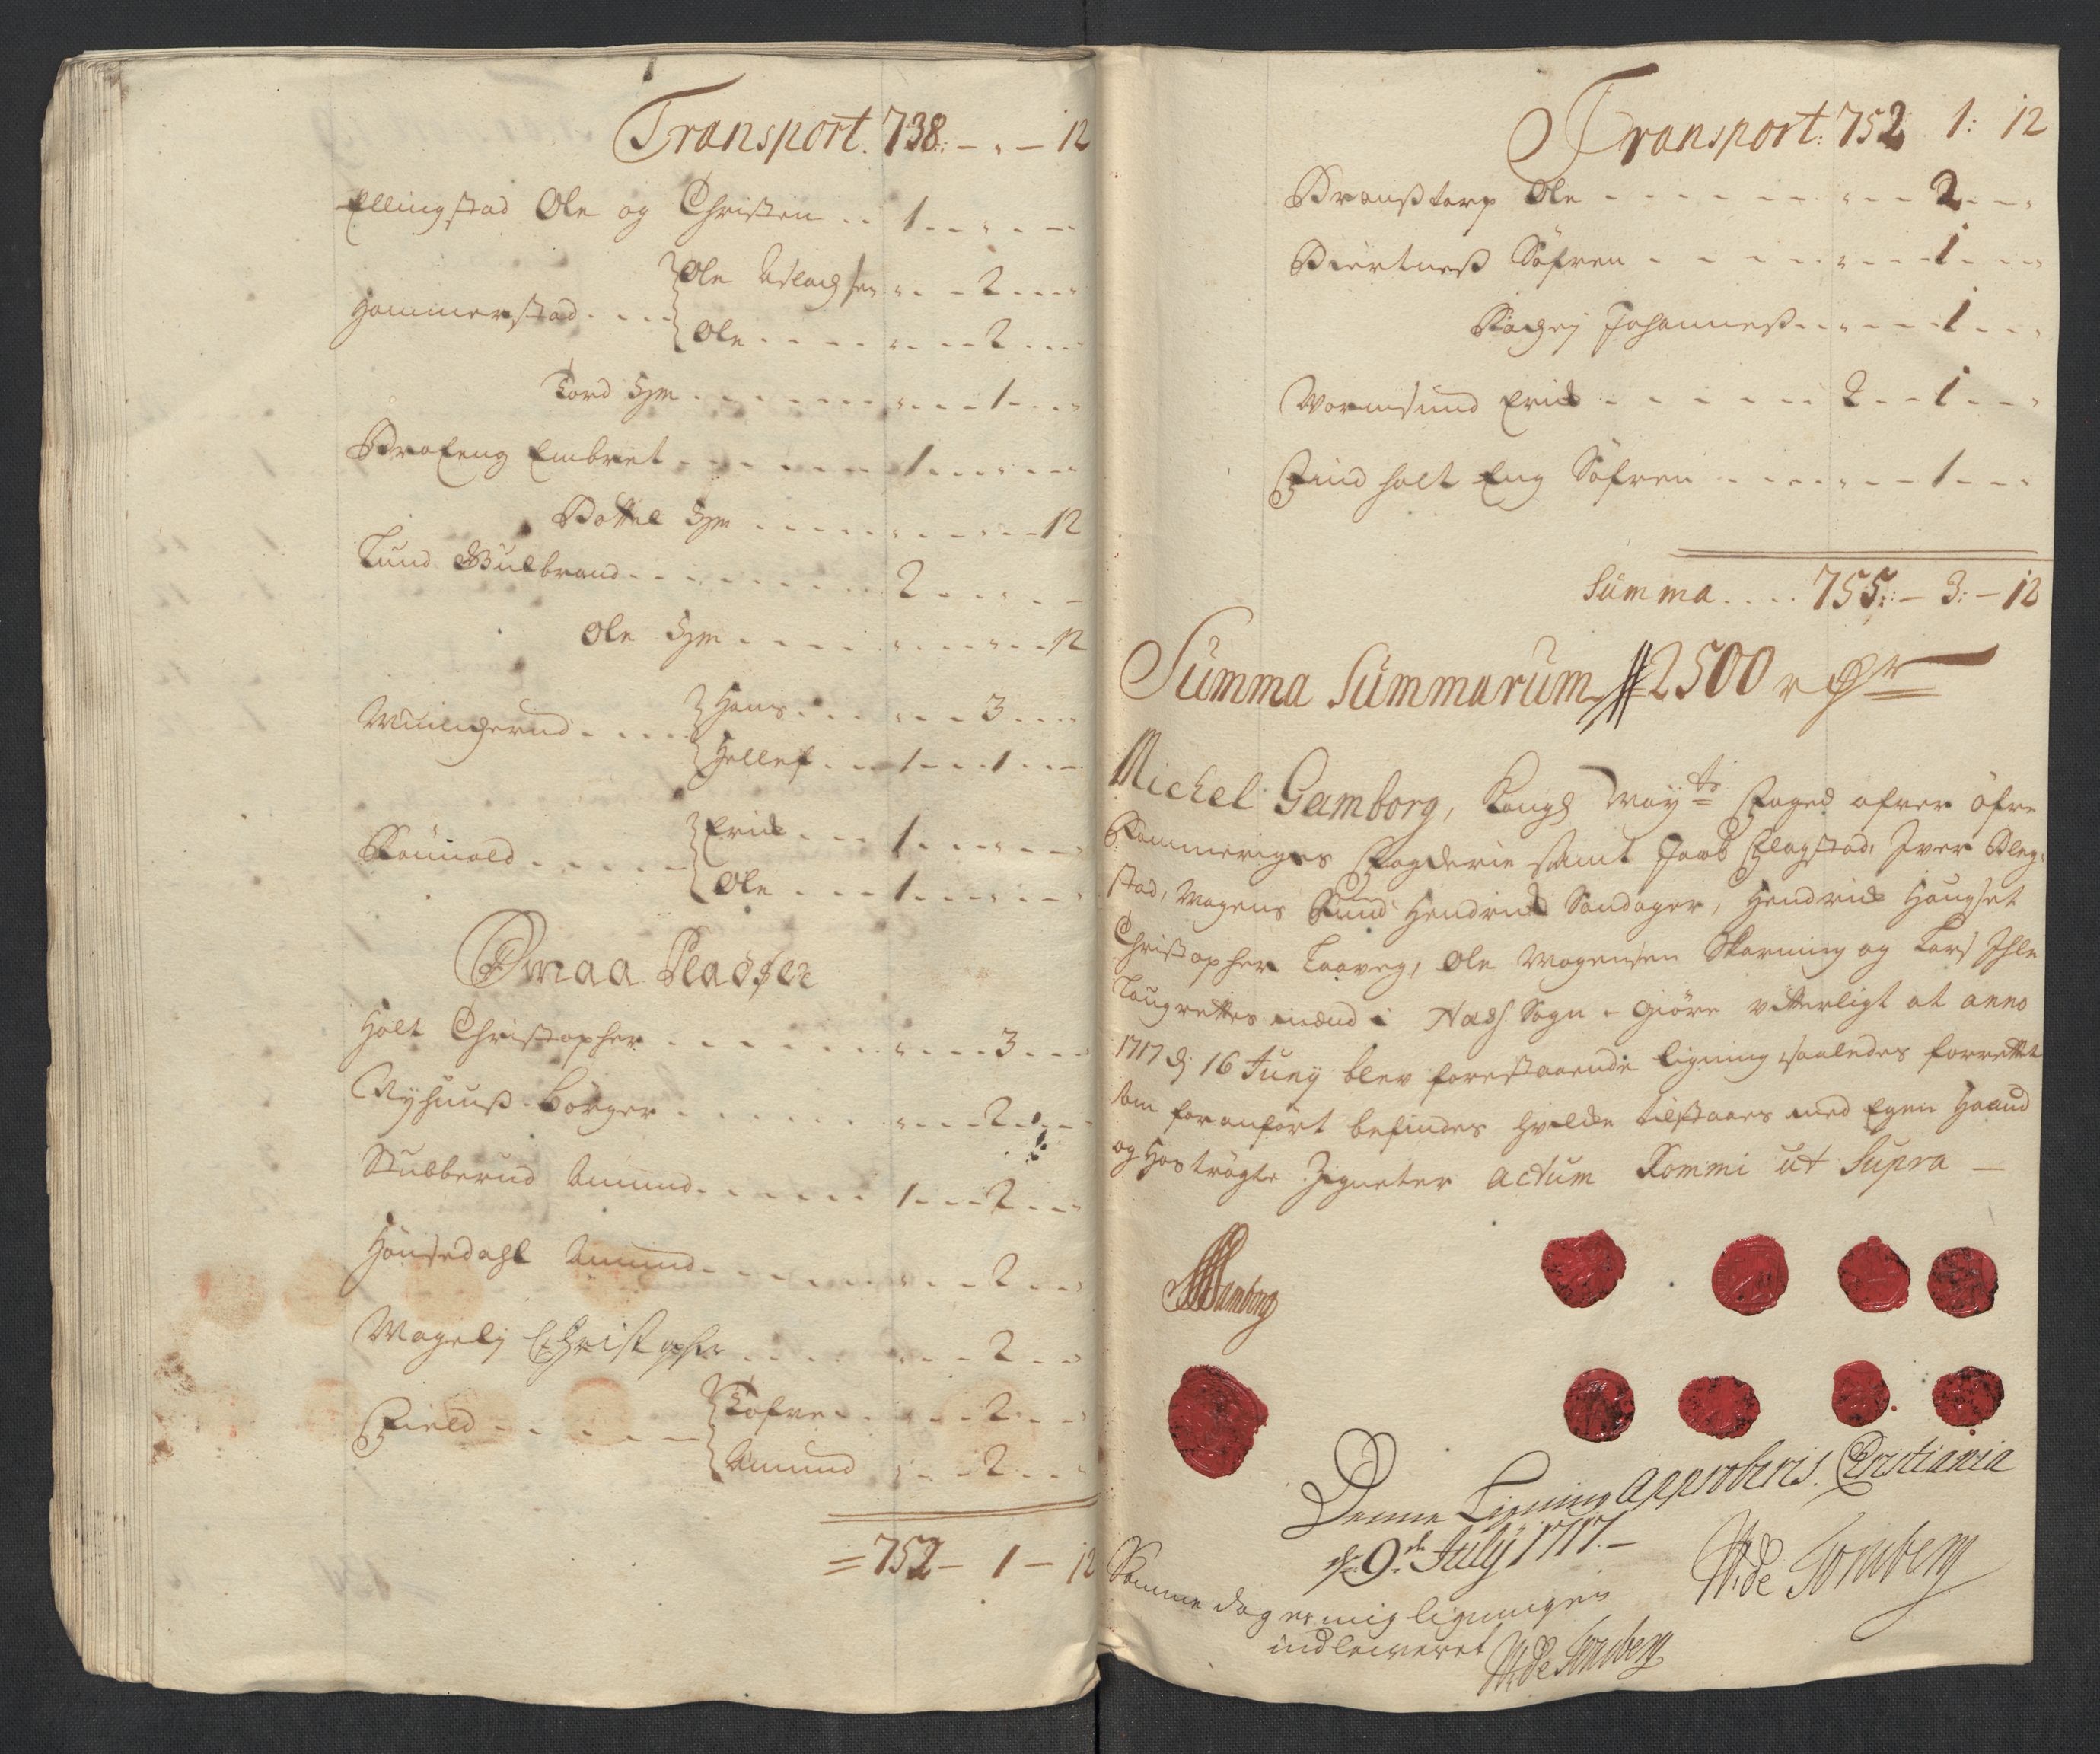 Transport. 738. – „ – 12
Ellingstad Ole og Christen . . 1 . . „ . . –
Hammerstad . . . Ole Aslachsen „ . . 2 . . „
Ole . . . . „ . . 2 . . .
Tord Ibm . . . . . . „ . . 1 . . „
Brateng Embret . . . . . . 1 . . „ . –
Bottel Ibm . . . . . „ . . „ . . 12
Lund Gulbrand . . . . . . 2 . . „ . –
Ole Ibm . . . . „ . . „ . . 12
Hans . . . „ . . 3 . . „
Hellef . . . 1 . . 1 . . –
Erich . . . 1 . . „ . . „
Ole . . . 1 . . „ . . „
Smaa Pladser
Holt Christopher . . . . . . „ . . 3 . . .
Nyhuuß Borger . . . . . . „ . . 2 . . .
Stubberud Amund . . . . . 1 . . 2 . . „
Hönsedahl Amund . . . . . „ . . 2 . . „
Magelj Christopher . . . . „ . . 2 . . „
Field . . . . . Tofve . . „ . . 2 . . „
Amund „ . . 2 . . „
= 752 – 1 – 12
Transport: 752 1: 12
Branßtorp Ole . . . . . . „ . . 2 . . „
Biertneß Söfren . . . . . „ . . 1 . . „
Johanneß . . „ . . 1 . . „
Wormsund Erich . . . . . 2 . . 1 . . „
Findholt Eng Söfren . . . . „ . . 1 . . .
Summa . . . . 755: – 3: – 12
Summa Summarum 2500 rdr
Michel Gamborg, Kongl May:ts Foged ofver öfre
Rommeriges Fogderie samt Jacob Flagstad, Iver Bleg-
stad, Mogens Rund Hendrich Sandager, Hendrich Haugset
Christopher Laaveg, Ole Mogensen Skarning og Lars Ihle
Laugrettes mænd i Næss Sogn – Giöre vitterligt at anno
1717 d: 16 Juny blev forestaaende ligning saaledes forrettet
som foranfört befindes hvilke tilstaaes med Egen Haand
og Hoströgte Zigneter Actum Rommi ut Supra –
MGamborg
Denne Ligning approberis. Christiania
d: 9de July 1717. –
W: de Tonsberg
Samme dag er mig ligningen
indleweret W: de Tonsberg